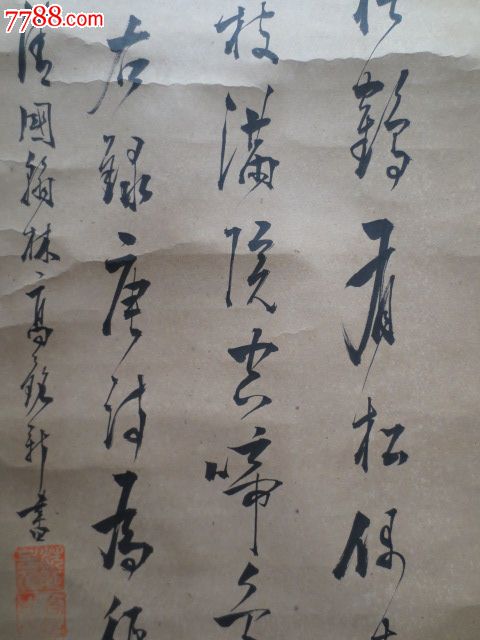 7788.com
鶴看松
枝滿院空啼鳥
右錄唐詩為
清國翰林高書